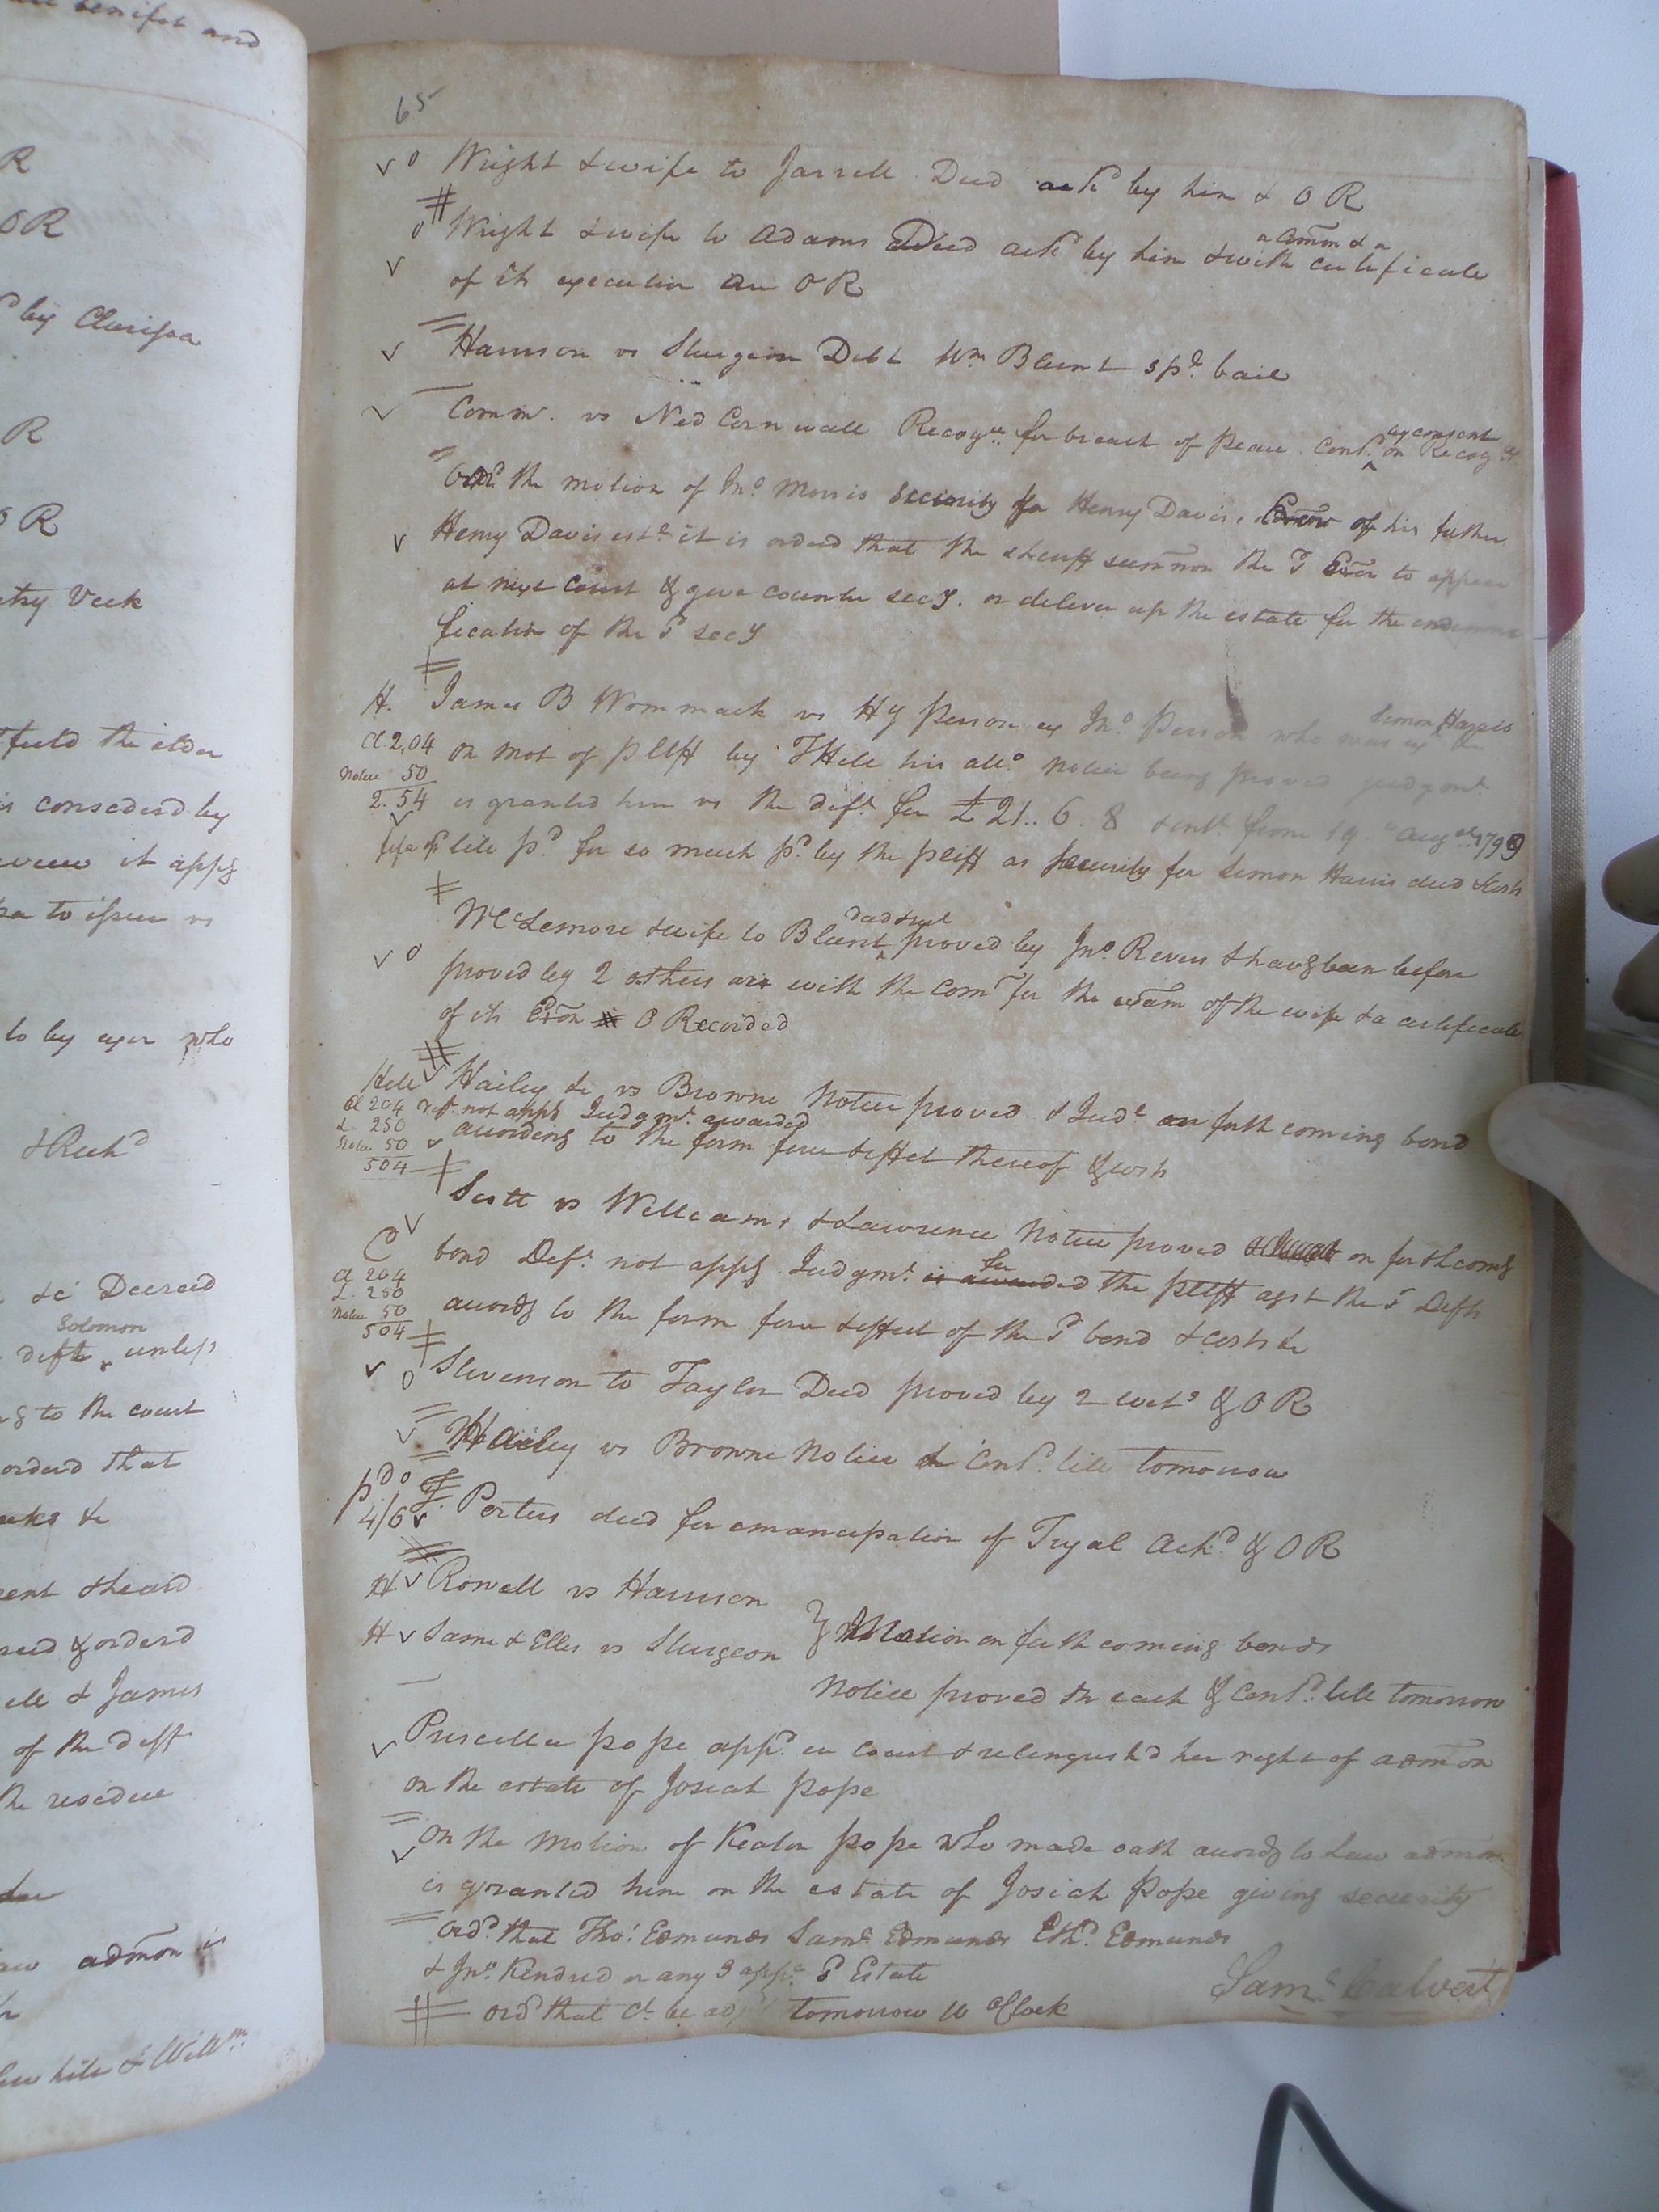 65
Wright & wife to Jarrell Deed ackd by him & O R
Wright & wife to Adams Deed ackd by him & with a Comn & a certificate
of its execution are O R
Harrison vs Sturgeon Debt Wm Blunt spl. bail
Comm. vs Ned Cornwall Recogce for breach of peace Contd. by consent on Recogce
the motion of Jno Morris security for Henry Davis, Exor of his father
Henry Davis estе it is orderd that the sheriff summon the sd Exor to appear
at next Court & give counter secy. or deliver up the estate for the indemni
fication of the sd secy
H. James B Wommack vs Hy Person ex Jno Person who was ex Simon Harris
Cl. 2,04 on mot of pltff by T Hill his atto notice being proved judgmt
Notice 50
2.54 is granted him vs the deft for £ 21.. 6. 8 & intt. from 19th Augst 1799
till pd for so much pd. by the pltff as security for Simon Harris decd & costs
McLemore & wife to Blunt proved by Jno Rivers & havg been before
proved by 2 others are with the comn for the exam of the wife & a certificate
of its Exon O Recorded
Hill Hailey &c vs Browne Notice proved & Judt on forth coming bond
Cl 204 Deft. not appg Judgmt. awarded
L. 250
Notice 50 according to the form force & effect thereof & costs
504
Scott vs Williams & Lawrence Notice proved on forthcomg
bond Deft. not appg Judgmt. for the pltff agst the sd Defts
Cl 204
L. 250
Notice 50 accordg to the form force & effect of the sd bond & costs &c
504
Stevenson to Taylor Deed proved by 2 wits & O R
Hailey vs Browne Notice & Contd. till tomorrow
pd
4/6 Porters deed for emancipation of Tryal Ackd & O R
H Rowell vs Harrison
H Same & Ellis vs Sturgeon } Motion on forth coming bonds
Notice proved in each & Contd. till tomorrow
Priscilla pope appd. in Court & relinquishd her right of admon
on the estate of Josiah pope
on the motion of Keator pope who made oath accordg to Law admon
is granted him on the estate of Josiah Pope giving security
ordd. that Thos. Edmunds Saml Edmunds Ethd. Edmunds
& Jno. Kendred or any 3 appr. sd Estate
Saml Calvert
ordd that Ct. be adjd tomorrow 10 oClock